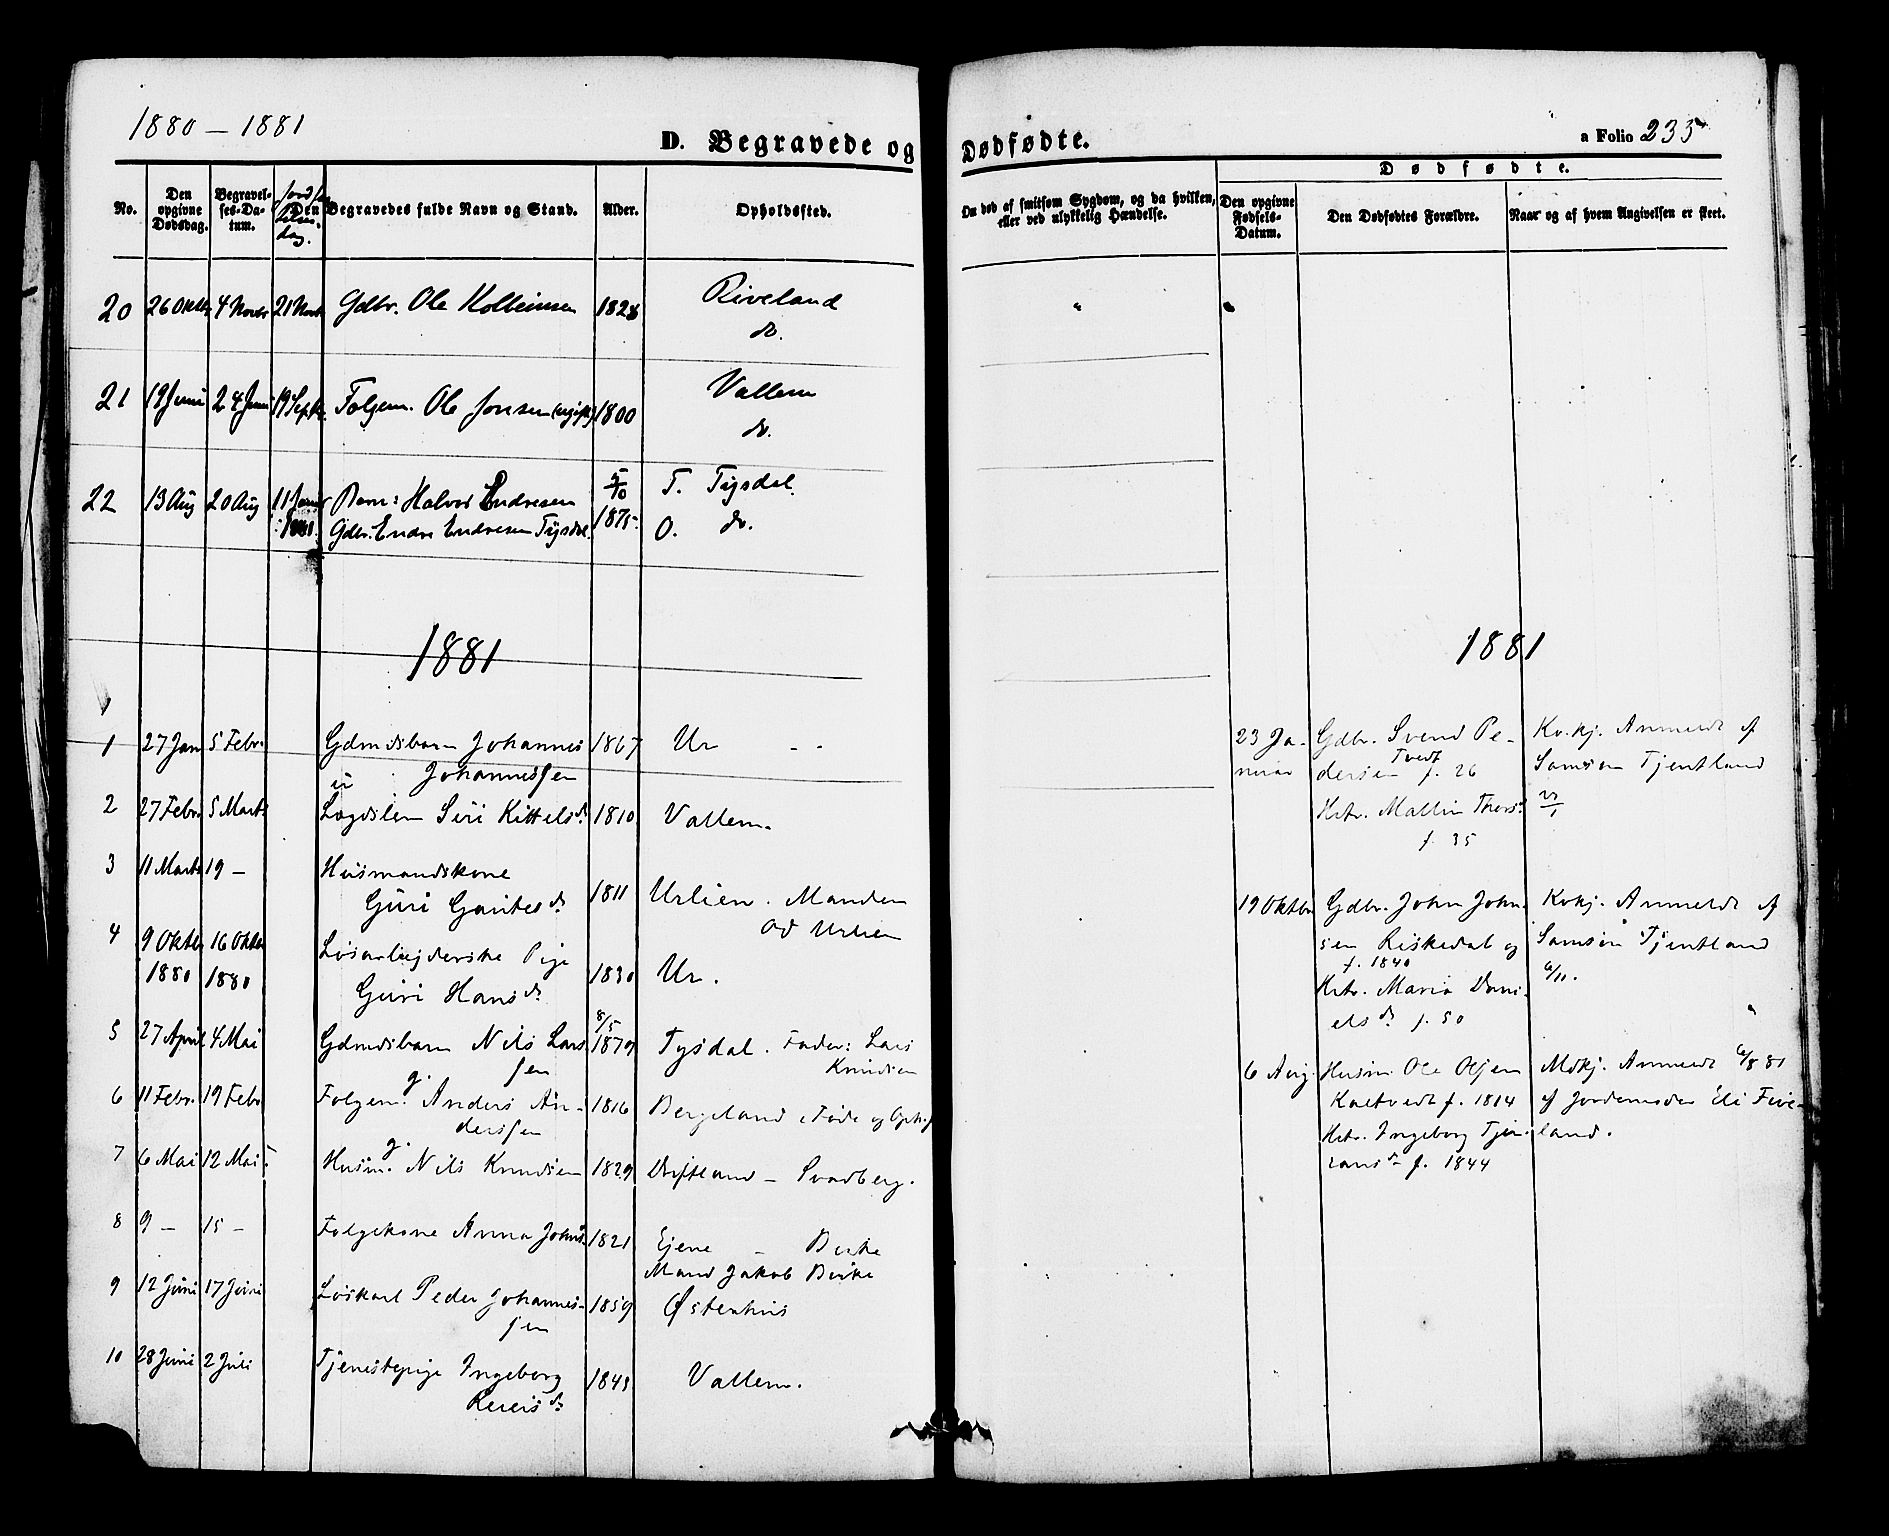 1880 – 1881
D. Begravede og Dødfødte.
a Folio 235
No.
Den opgivne Dødsdag.
Begravelses-Datum.
Den Begravedes fulde Navn og Stand.
Alder.
Opholdssted.
Om død af smitsom Sygdom, og da hvilken, eller ved ulykkelig Hændelse.
Dødfødte.
Den opgivne Fødsels-Datum.
Den Dødfødtes Forældre.
Naar og af hvem Angivelsen er skeet.
20 26 Oktbr 4 Novbr 21 Novb Gdbr. Ole Kolbeinsen 1828 Riveland
do.
21 19 Juni 24 Juni 19 Septb. Folgem. Ole Jonsen (ugift) 1800 Vallem
do.
22 13 Aug 20 Aug 11 Januar Barn: Halvor Endresen 5/10 T. Tysdal.
1881. Gdbr. Endre Endresen Tysdal. 1875. O. do.
1881
1 27 Jan 5 Febr. Gdmdsbarn Johannes 1867 Ur
Johannessen
2 27 Febr. 5 Marts Lægdslem Siri Kittelsdr. 1810 Vallem.
3 11 Marts 19 – Husmandskone
Guri Gautesdr. 1811 Urlien. Manden
Od Urlien
4 9 Oktbr 16 Oktbr Løsarbejderske Pige
1880 1880 Guri Hansdr. 1830 Ur.
5 27 April 4 Mai Gdmdsbarn Nils Lars 8/5 1879 Tysdal. Fader: Lars
sen Knudsen
6 11 Febr. 19 Febr. Folgem. g. Anders An- 1816 Bergeland, Føde og Oph.
derssen
7 6 Mai 12 Mai Husm. g. Nils Knudsen 1829 Driftland – Svadberg.
8 9 – 15 – Folgekone Anna Johns 1821 Ejene – Birke
Mand Jakob Birke
9 12 Juni 17 Juni Løskarl Peder Johannes- 1859 Østerhus
sen
10 28 Juni 2 Juli Tjenestepige Ingeborg 1849 Vallem.
Reiersdr.
1881
23 Ja- Gdbr. Svend Pe- Kvkj. Anmeldt af
nuar dersen Tvedt f. 26 Samson Tjentland
Kstr. Mallin Thorsdr.
f. 35
19 Oktbr Gdbr. John John- Kvkj. Anmeldt af
sen Riskedal og Samson Tjentland
f. 1840 6/11.
Kstr. Maria Dani-
elsdr. f. 50
6 Aug. Husm. Ole Olsen Mdkj. Anmeldt 6/8 81
Kaltvedt f. 1814 af Jordemoder Eli Five-
Kstr. Ingeborg Tjer- land.
ransdr. f. 1844